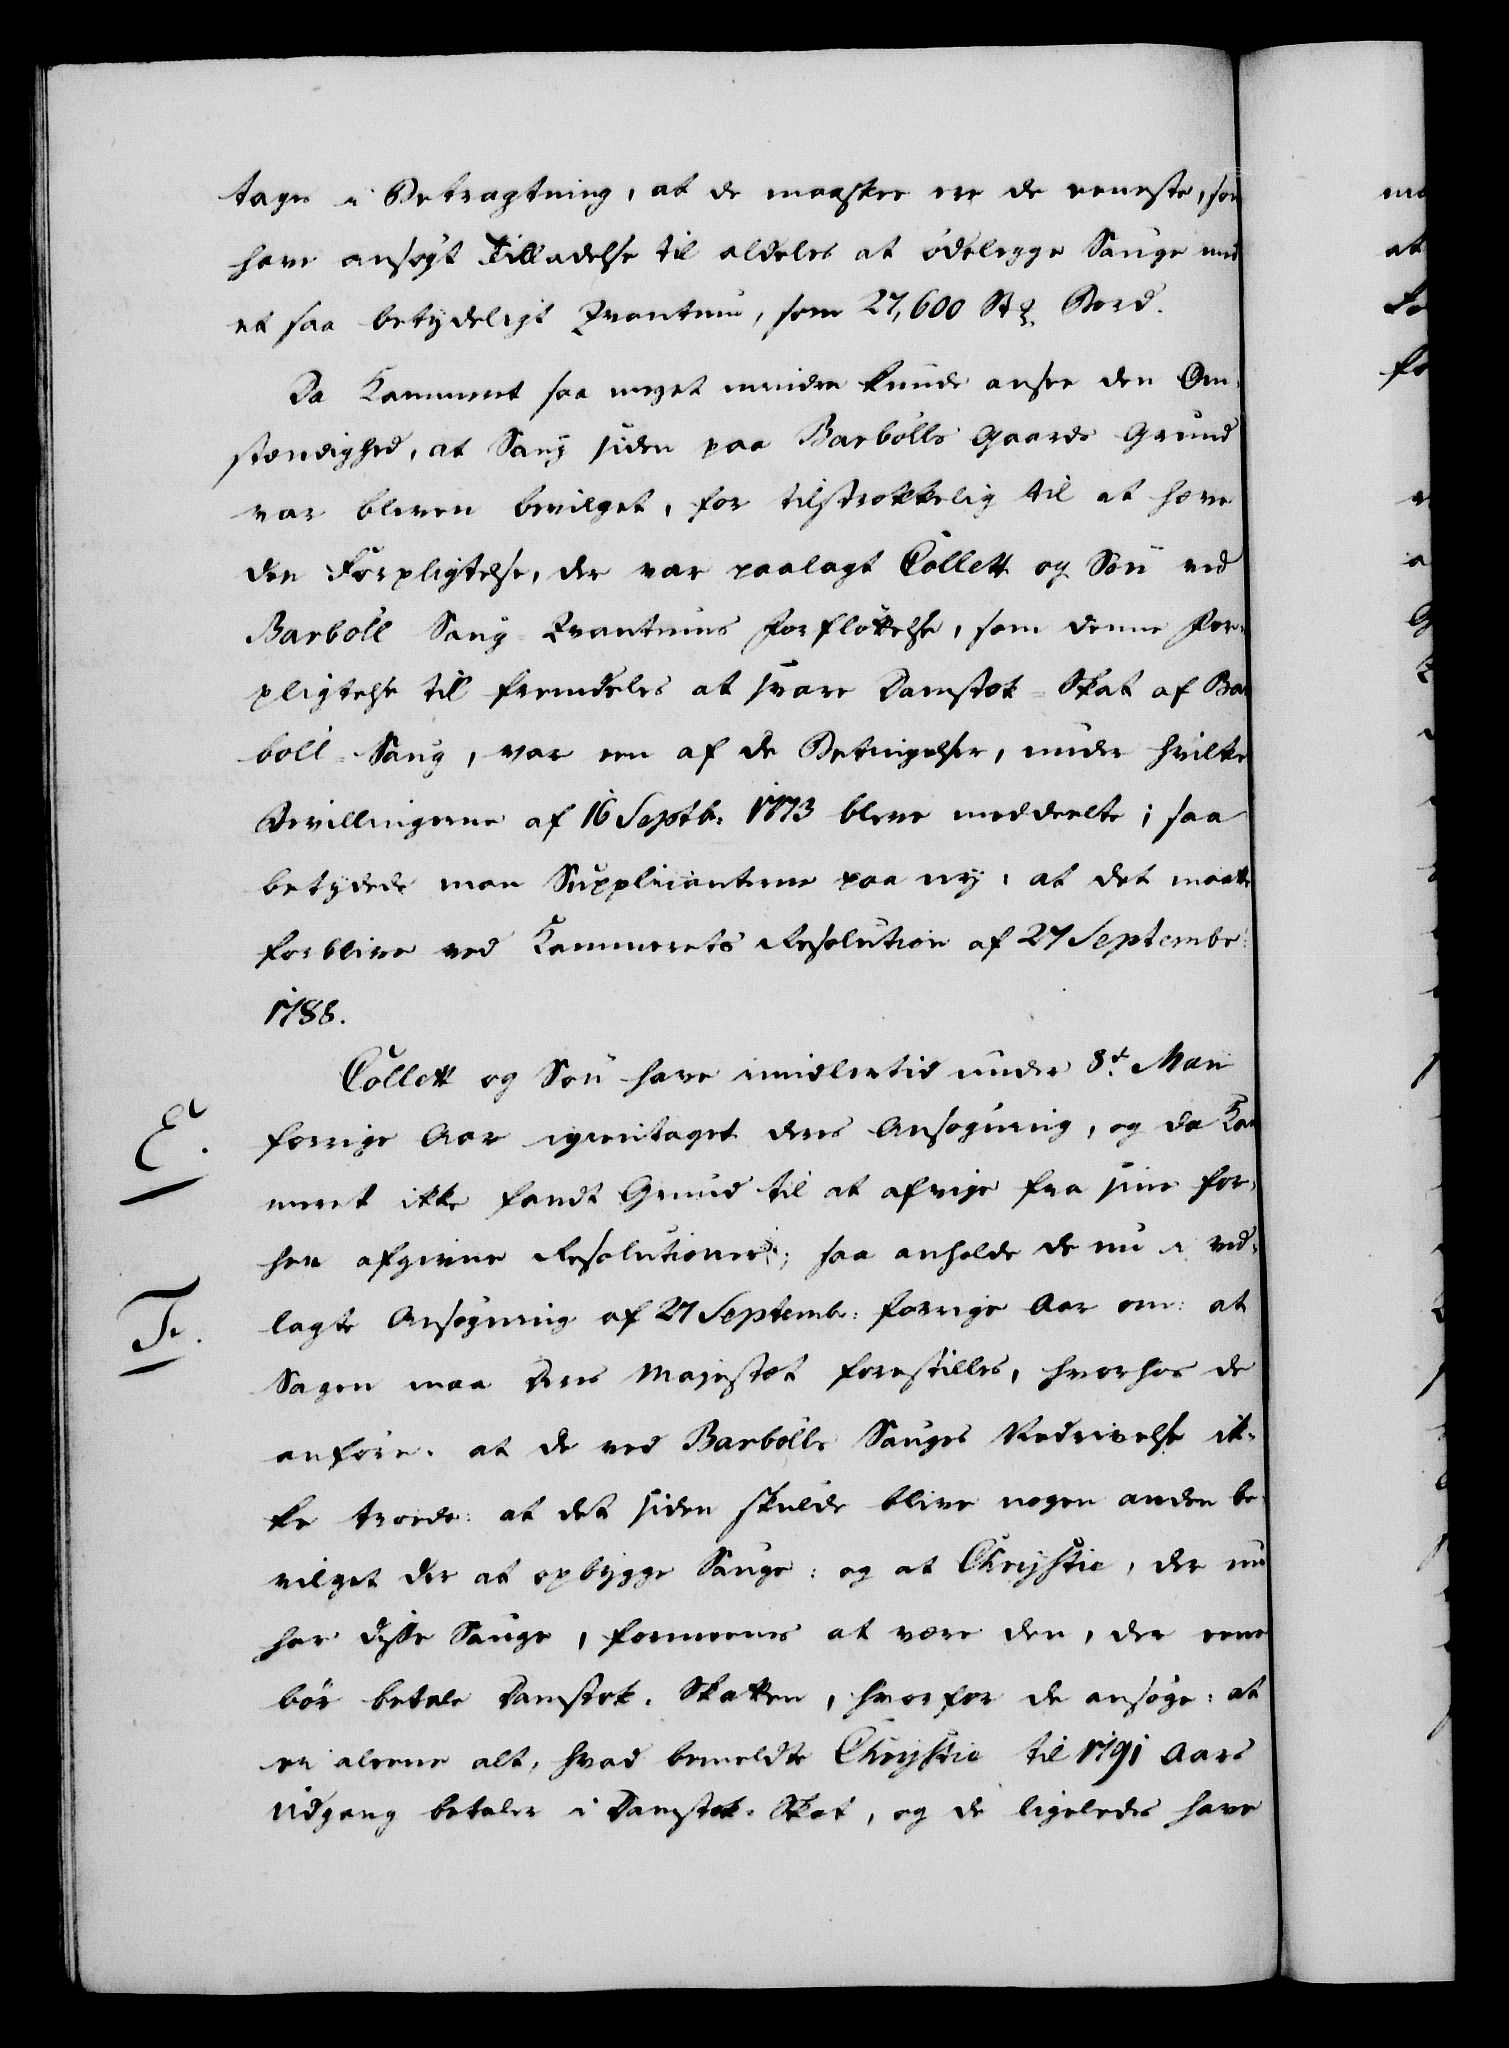 tages i Betragtning, at de maaskee ere de eeneste, som
have ansøgt Tilladelse til aldeles at ødelegge Sauge med
et saa betydeligt Qvantum, som 27,600 Stk. Bord.
Da Kammeret saa meget mindre kunde ansee den Om-
stændighed, at Saug siden paa Barbølls Gaards Grund
var bleven bevilget, for tilstrækkelig til at hæve
den Forpligtelse, der var paalagt Collett og Søn ved
Barbøll Saug-Qvantums Forfløttelse, som denne For-
pligtelse til fremdeles at svare Damstok-Skat af Bar
bøll-Saug, var een af de Betingelser, under hvilke
Bevillingerne af 16 Septb: 1773 bleve meddeelte; saa
betydede man Supplicanterne paa ny: at det maatte
forblive ved Kammerets Resolution af 27 Septembr:
1788.
Collett og Søn have imidlertid under 8de Maii
E. forrige Aar igientaget deres Ansøgning, og da Kam
meret ikke fandt Grund til at afvige fra sine for-
hen afgivne Resolutioner; saa anholde de nu i ved-
F. lagte Ansøgning af 27 Septembr: forrige Aar om: at
Sagen maa Deres Majestæt forestilles, hvorhos de
anføre: at de ved Barbølls Sauges Nedrivelse ik-
ke troede: at det siden skulde blive nogen anden be-
vilget der at opbygge Sauge: og at Chrÿstie, der nu
har disse Sauge, formeenes at være den, der eene
bør betale Damstok-Skatten, hvorfor de ansøge: at
ei aleene alt, hvad bemeldte Chrÿstie til 1791 Aars
Udgang betaler i Damstok-Skat, og de ligeledes have